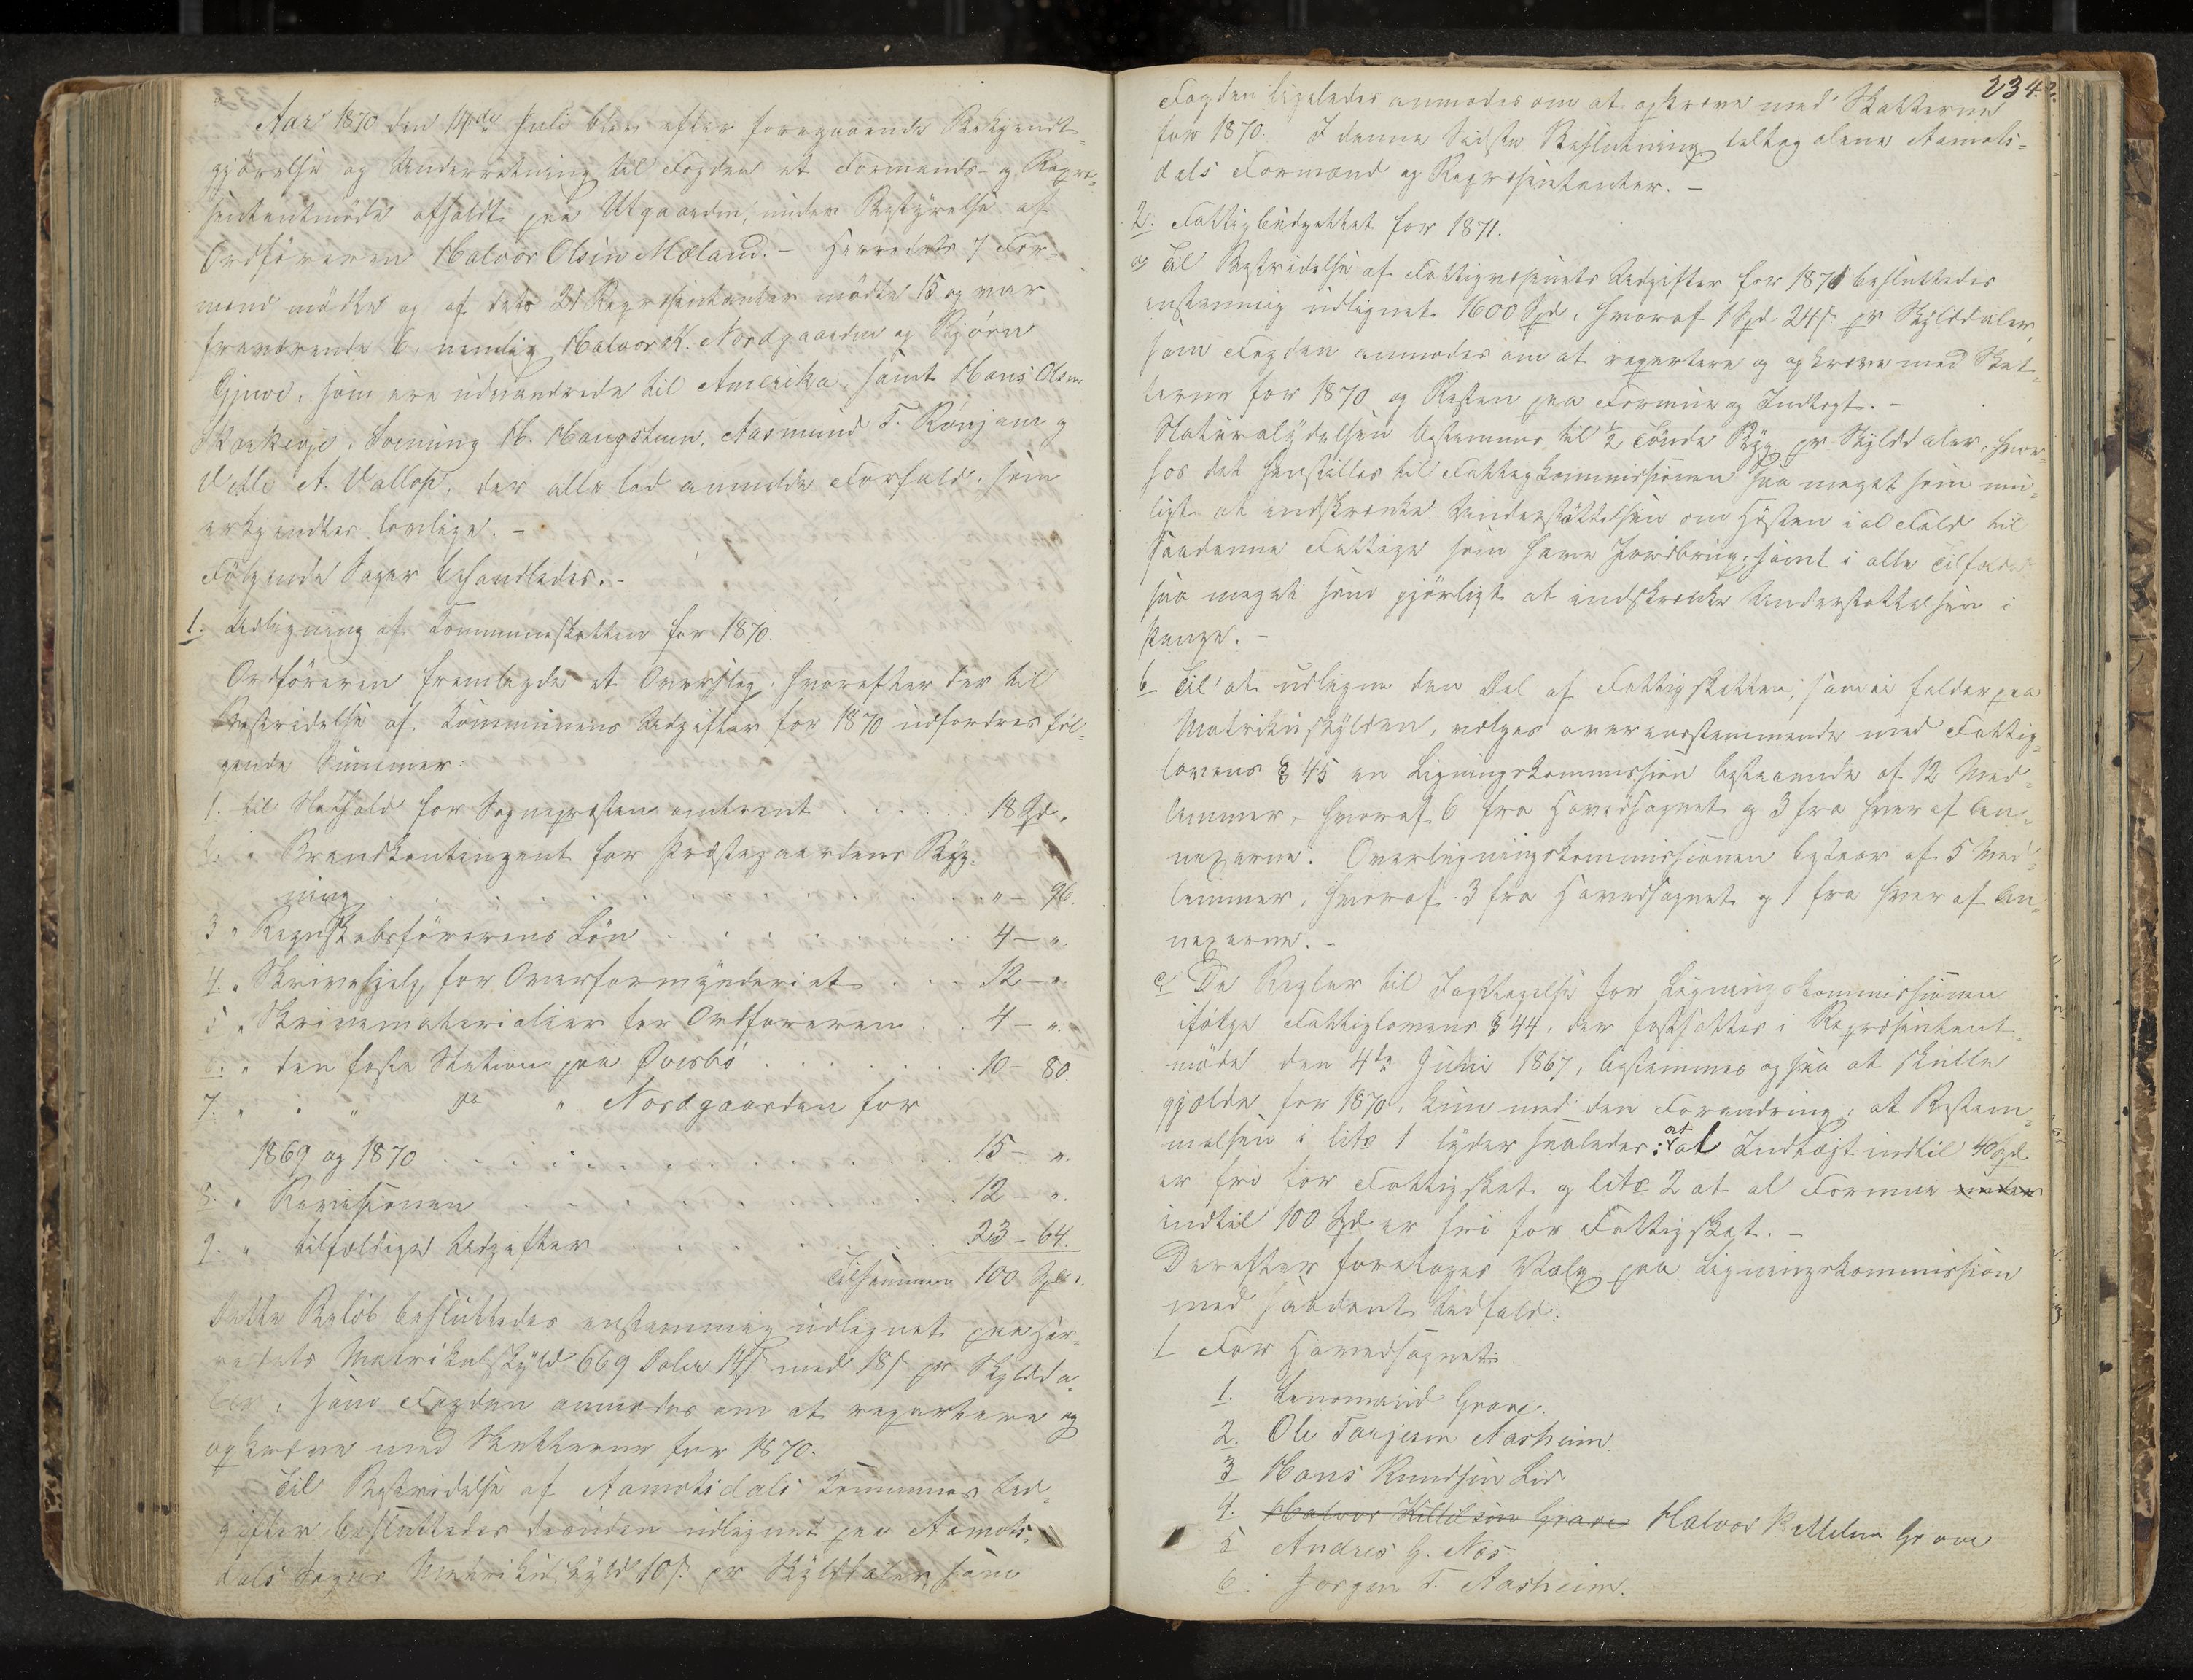 Aar 1870 den 14de Juli blev efter foregaaende Bekjendt-
gjörelse og Underretning til Fogden et Formands- og Repræ-
sentantmöde afholdt paa Utgaarden, under Bestyrelse af
Ordföreren Halvor Olsen Mæland. - Herredets 7 For-
mænd mödte og af dets 21 Repræsentanter mödte 15 og var
fraværende 6, nemlig Halvor K. Nordgaarden og Björn
Gjuve, som ere udvandrede til Amerika, samt Hans Olsen
Skarkevje, Sveinung H. Haugstuen, Aasmund T. Rönjom og
Vetle A. Vallop, der alle lod anmelde Forfald, som
erkjendtes lovlige. -
Fölgende Sager behandledes. -
1. Udligning af Kommuneskatten for 1870.
Ordföreren fremlagde et Overslag, hvorefter der til
Bestridelse af Kommunens Udgifter for 1870 udfordres föl-
gende Summer:
1. til Nathold for Sognepræsten omtrent . . . . . 18 Spd.
2. " Brandkontingent for Præstegaardens Byg-
ning . . . . . . . . . . " - 96.
3 " Regnskabsförerens Lön . . . . . . 4 - ".
4. " Skrivehjelp for Overformynderiet . . . 12 - "
5 " Skrivematerialier for Ordföreren . . 4 - ".
6. " den faste Station paa Övesbö . . . . . 10 - 80.
7. " " " paa " Nordgaarden for
1869 og 1870 . . . . . . . . . 15 - ".
8. " Revisionen . . . . . . . . 12 - ".
9. " tilfældige Udgifter . . . . . . 23 - 64.
Tilsammen 100 Spd.
Dette Belöb besluttedes enstemmig udlignet paa Her-
redets Matrikulskyld 669 Daler 14 ß med 18 ß pr Skyldda-
ler, som Fogden anmodes om at repartere og
opkræve med Skatterne for 1870.
Til Bestridelse af Aamotsdals Kommunes Ud-
gifter besluttedes desuden udlignet paa Aamots-
dals Sogns Matrikulskyld 10 ß pr Skylddaler, som
234.
Fogden ligeledes anmodes om at opkræve med Skatterne
for 1870. I denne sidste Beslutning deltog alene Aamots-
dals Formænd og Repræsentanter. -
2. Fattigbudgettet for 1871.
a Til Bestridelse af Fattigvæsenets Udgifter for 1871 besluttedes
enstemmig udlignet 1600 Spd, hvoraf 1 Spd 24 ß pr Skylddaler,
som Fogden anmodes om at repartere og opkræve med Skat-
terne for 1870 og Resten paa Formue og Indtægt. -
Naturalydelsen bestemmes til 1/2 Tönde Byg pr Skylddaler, hvor-
hos det henstilles til Fattigkommissionen saa meget som mu-
ligt at indskrænke Understöttelsen om Hösten i al Fald til
saadanne Fattige som have Jordbrug, samt i alle Tilfælde
saa meget som gjörligt at indskrænke Understöttelsen i
Penge. -
b Til at udligne den Del af Fattigskatten, som ei falder paa
Matrikulskylden, vælges overensstemmende med Fattig-
lovens § 45 en Ligningskommission bestaaende af 12 Med-
lemmer, hvoraf 6 fra Hovedsognet og 3 fra hver af An-
nexerne. Overligningskommissionen bestaar af 5 Med-
lemmer, hvoraf 3 fra Hovedsognet og 1 fra hver af An-
nexerne. -
c De Regler til Iagttagelse for Ligningskommissionen
ifölge Fattiglovens § 44, der fastsattes i Repræsentant-
möde den 4de Juni 1867, bestemmes ogsaa at skulle
gjælde for 1870, kun med den Forandring, at Bestem-
melsen i litr 1 lyder saaledes: at al Indtægt indtil 40 Spd
er fri for Fattigskat og litr 2 at al Formue under
indtil 100 Spd er fri for Fattigskat. -
Derefter foretoges Valg paa Ligningskommission
med saadant Udfald:
1 For Hovedsognet
1. Lensmand Grave.
2. Ole Tarjesen Aasheim
3 Hans Knudsen Lid
4. Halvor Kittilsen Grave Halvor Kittilsen Grave
5 Andres G. Næs
6. Jörgen T. Aasheim.